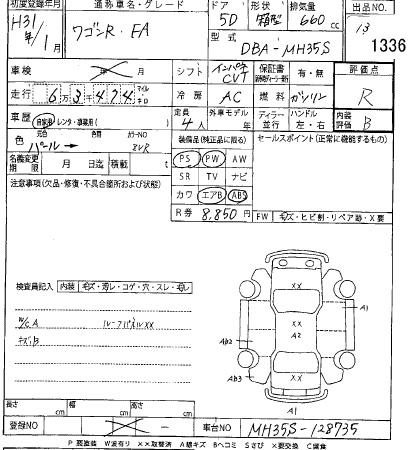 初度登録年月 通称車名・グレード ドア 形状 排気量 出品NO.
H31年/1月 ワゴンR・FA 5D 箱型 660cc 13
型式 DBA-MH35S 1336
車検 年 月 シフト インパネCVT 保証書 有・無 評価点
走行 6万3千474 マイル キロ 冷房 AC 燃料 ガソリン R
車歴 自家用・レンタ・事業用( ) 定員 4人 外車モデル ディーラー 並行 ハンドル 左・右 内装評価 B
色 元色 パール→ カラーNO 装備品(純正品に限る) セールスポイント(正常に機能するもの)
名義変更期限 月 日迄 積載 t PS PW AW
注意事項(欠品・修復・不具合箇所および状態) SR TV ナビ
カワ エアB ABS
R券 8,850円 FW キズ・ヒビ割・リペア跡・X要
検査員記入 内装 キズ・汚レ・コゲ・穴・スレ・モレ
W/C A ルーフパネルXX
キズB
XX
A1
A2
Ab2
XX
Ab3
A1
長さ cm 幅 cm 高さ cm
登録NO 車台NO MH35S-128735
P 要塗装 W波有り ××取替済 A線キズ Bヘコミ Sさび X要交換 C腐食